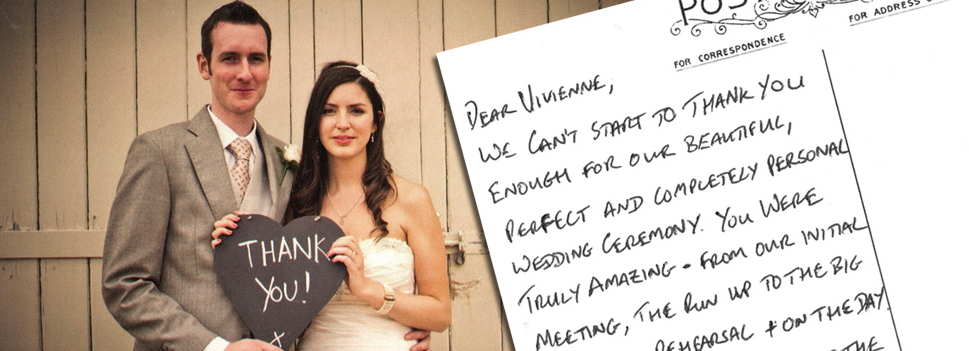 THANK
YOU!
X
POS
FOR CORRESPONDENCE
FOR ADDRESS
DEAR VIVIENNE,
WE CAN'T START TO THANK YOU
ENOUGH FOR OUR BEAUTIFUL,
PERFECT AND COMPLETELY PERSONAL
WEDDING CEREMONY. YOU WERE
TRULY AMAZING - FROM OUR INITIAL
MEETING, THE RUN UP TO THE BIG
REHEARSAL + ON THE DAY.
THE